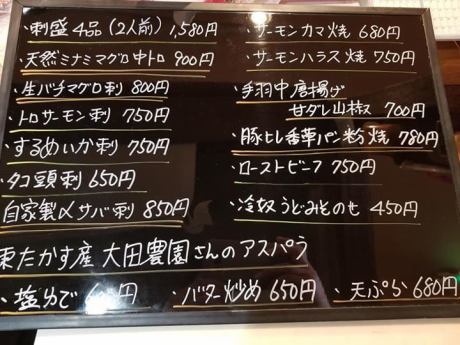 ・刺盛4品(2人前)1,580円
・天然ミナミマグロ中トロ 900円
・生バチマグロ刺 800円
・トロサーモン刺 750円
・するめいか刺 750円
・タコ頭刺 650円
自家製〆サバ刺 850円
・サーモンカマ焼 680円
・サーモンハラス焼 750円
・手羽中唐揚げ
甘ダレ山椒 700円
・豚ヒレ香草パン粉焼 780円
・ローストビーフ 750円
・冷奴うどみそのせ 450円
東たかす産 大田農園さんのアスパラ
・塩ゆで 円
・バター炒め 650円
・天ぷら 680円